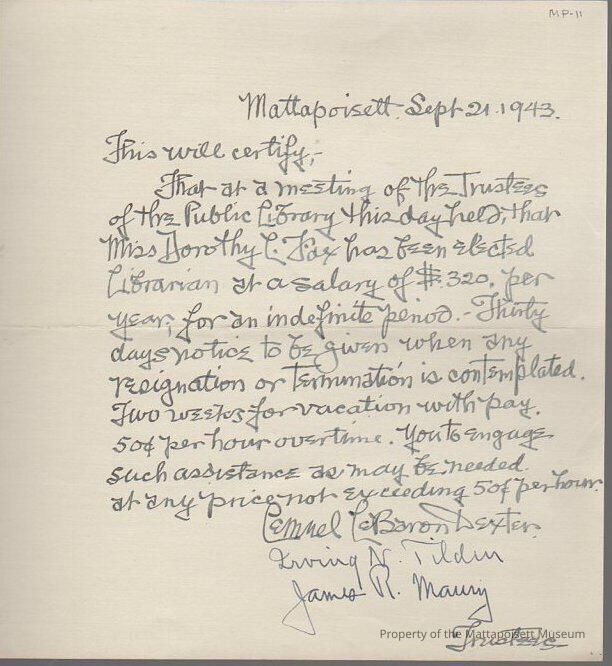 MP-11
Mattapoisett. Sept 21. 1943.
This will certify,-
That at a meeting of the Trustees
of the Public Library this day held, that
Miss Dorothy L. Fox has been elected
Librarian at a salary of $.320. per
year, for an indefinite period.- Thirty
days notice to be given when any
resignation or termination is contemplated.
Two weeks for vacation with pay.
50¢ per hour overtime. You to engage
such assistance as may be needed.
at any price not exceeding 50¢ per hour.
Lemuel LeBaron Dexter.
Irving N. Tilden
James R. Maury
Trustees
Property of the Mattapoisett Museum